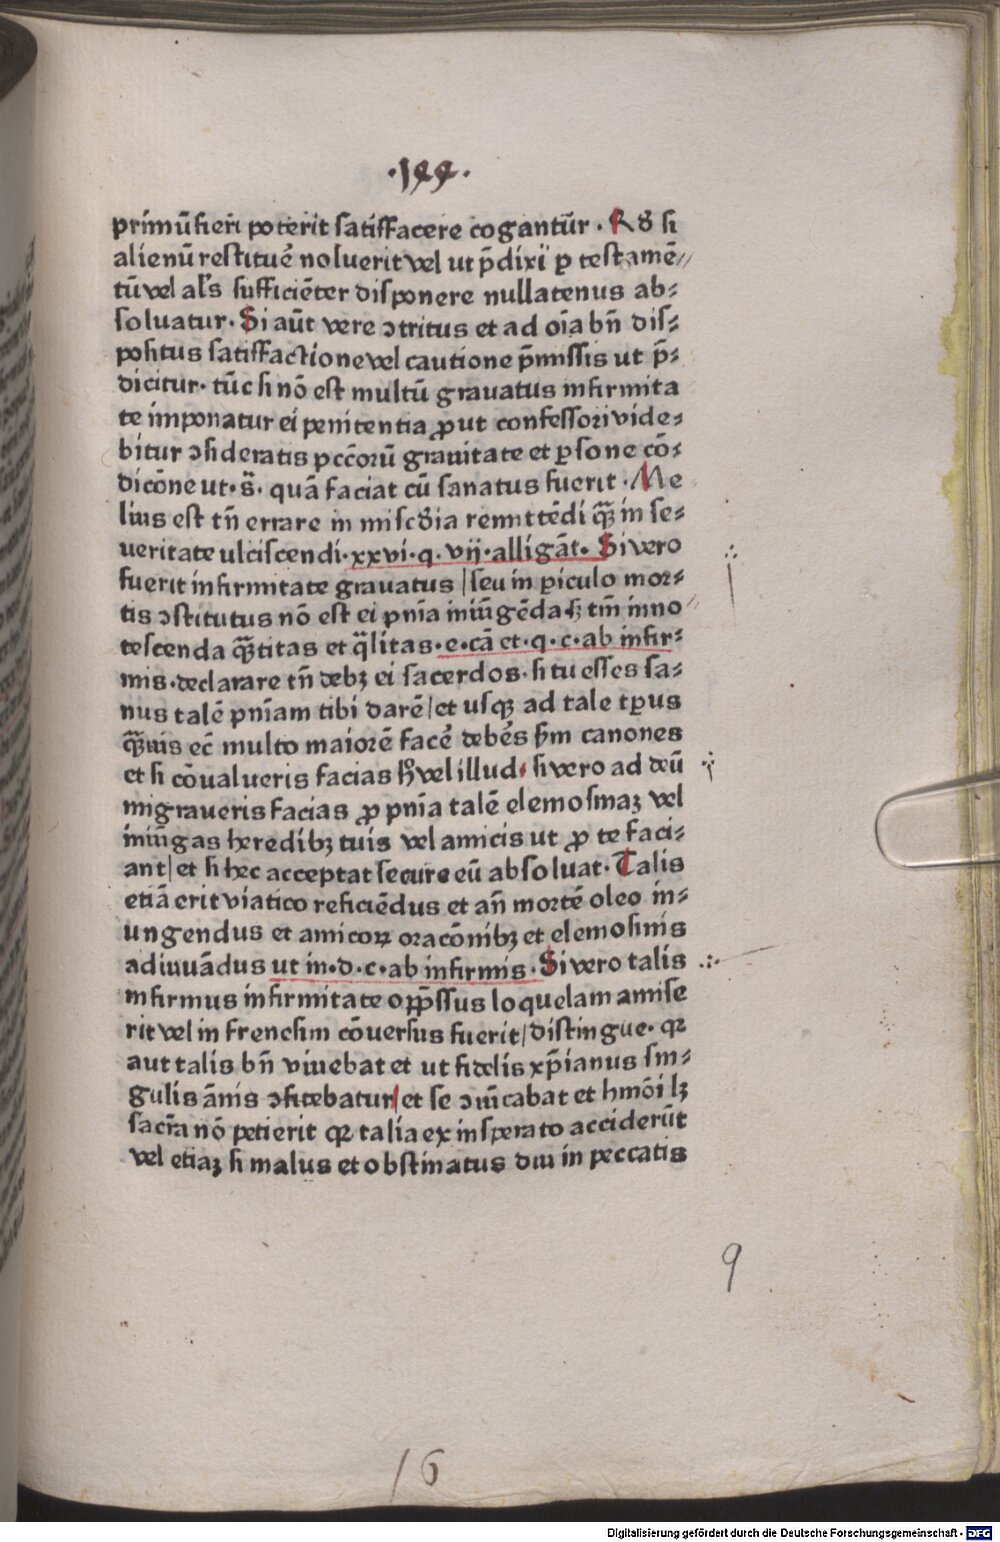 ·144·
primū fieri poterit satisfacere cogantūr · R8 si
alienū restituē noluerit vel ut p̄dixi ꝑ testamē//
tū vel al's sufficiēter disponere nullatenus ab⸗
soluatur · Si aūt vere ↄtritus et ad oīa bn̄ dis⸗
positus satisfactione vel cautione p̄missis ut p̄⸗
dicitur · tūc si nō est multū grauatus infirmita
te imponatur ei penitentia ꝓut confessori vide⸗
bitur ↄsideratis pcc̄orū grauitate et ꝑsone cō⸗
dicōne ut · s̄ · quā faciat cū sanatus fuerit · Me
lius est tn̄ errare in misc̄dia remittēdi qꝫ̄ in se⸗
ueritate ulciscendi · xxvi · q · vij · alligāt · Si vero
fuerit infirmitate grauatus | seu in ꝑiculo mor⸗
tis ↄstitutus nō est ei pn̄ia iniūgēda sꝫ tm̄ inno//
tescenda qꝫ̄titas et q̄litas · e · cā et · q · c · ab infir⸗
mis · declarare tn̄ debꝫ ei sacerdos · si tu esses sa⸗
nus talē pn̄iam tibi darē | et usqꝫ ad tale tp̄us
qꝫ̄uis ec̄ multo maiorē facē debēs s̄m canones
et si cōualueris facias h̄ vel illud · si vero ad deū
migraueris facias ꝓ pn̄ia talē elemosinaꝫ vel
iniūgas heredibꝫ tuis vel amicis ut ꝓ te faci⸗
ant | et si hec acceptat secure eū absoluat · Talis
etiā erit viatico reficiēdus et an̄ mortē oleo in⸗
ungendus et amicoꝝ oracōnibꝫ et elemosinis
adiuuādus ut in · d · c · ab infirmis · Si vero talis
infirmus infirmitate opp̄ssus loquelam amise
rit vel in frenesim cōuersus fuerit | distingue · qꝛ
aut talis bn̄ viuebat et ut fidelis xp̄ianus sin⸗
gulis ānis ↄfitebatur | et se ↄīcabat et hmōi lꝫ
sacr̄a nō petierit qꝛ talia ex insperato acciderūt
vel etiaꝫ si malus et obstinatus diu in peccatis
9
16
Digitalisierung gefördert durch die Deutsche Forschungsgemeinschaft · DFG